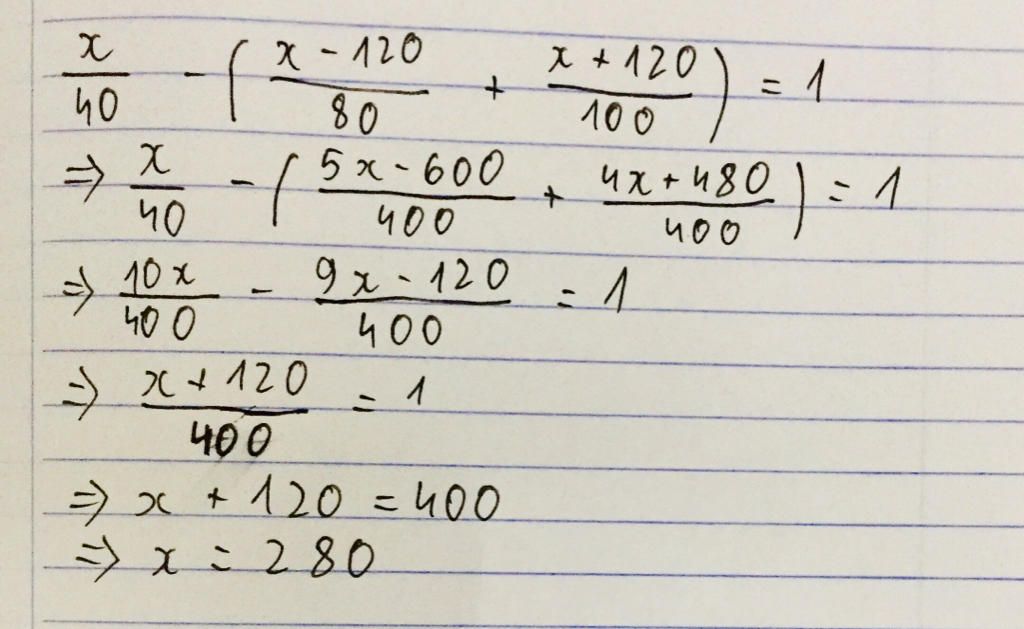 x/40 - ( (x - 120)/80 + (x + 120)/100 ) = 1
⇒ x/40 - ( (5x - 600)/400 + (4x + 480)/400 ) = 1
⇒ 10x/400 - (9x - 120)/400 = 1
⇒ (x + 120)/400 = 1
⇒ x + 120 = 400
⇒ x = 280